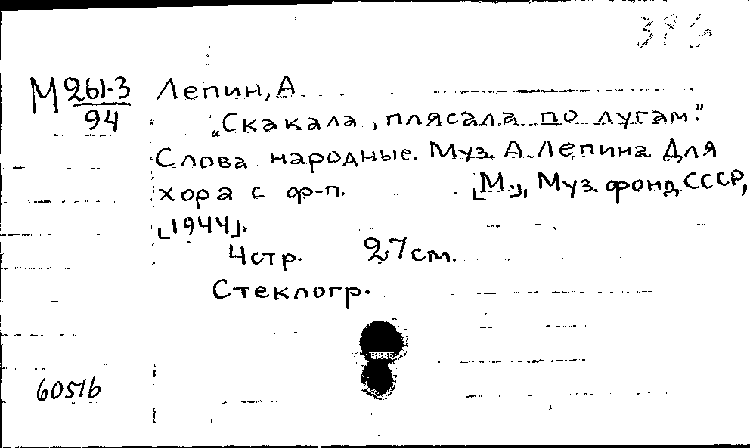 М 261-3
94
Лепин, А.
„Скакала, плясала по лугам."
Слова народные. Муз. А. Лепина. Для
хора с ф-п. [М.], Муз. фонд СССР,
[1944].
4 стр. 27 см.
Стеклогр.
6051б